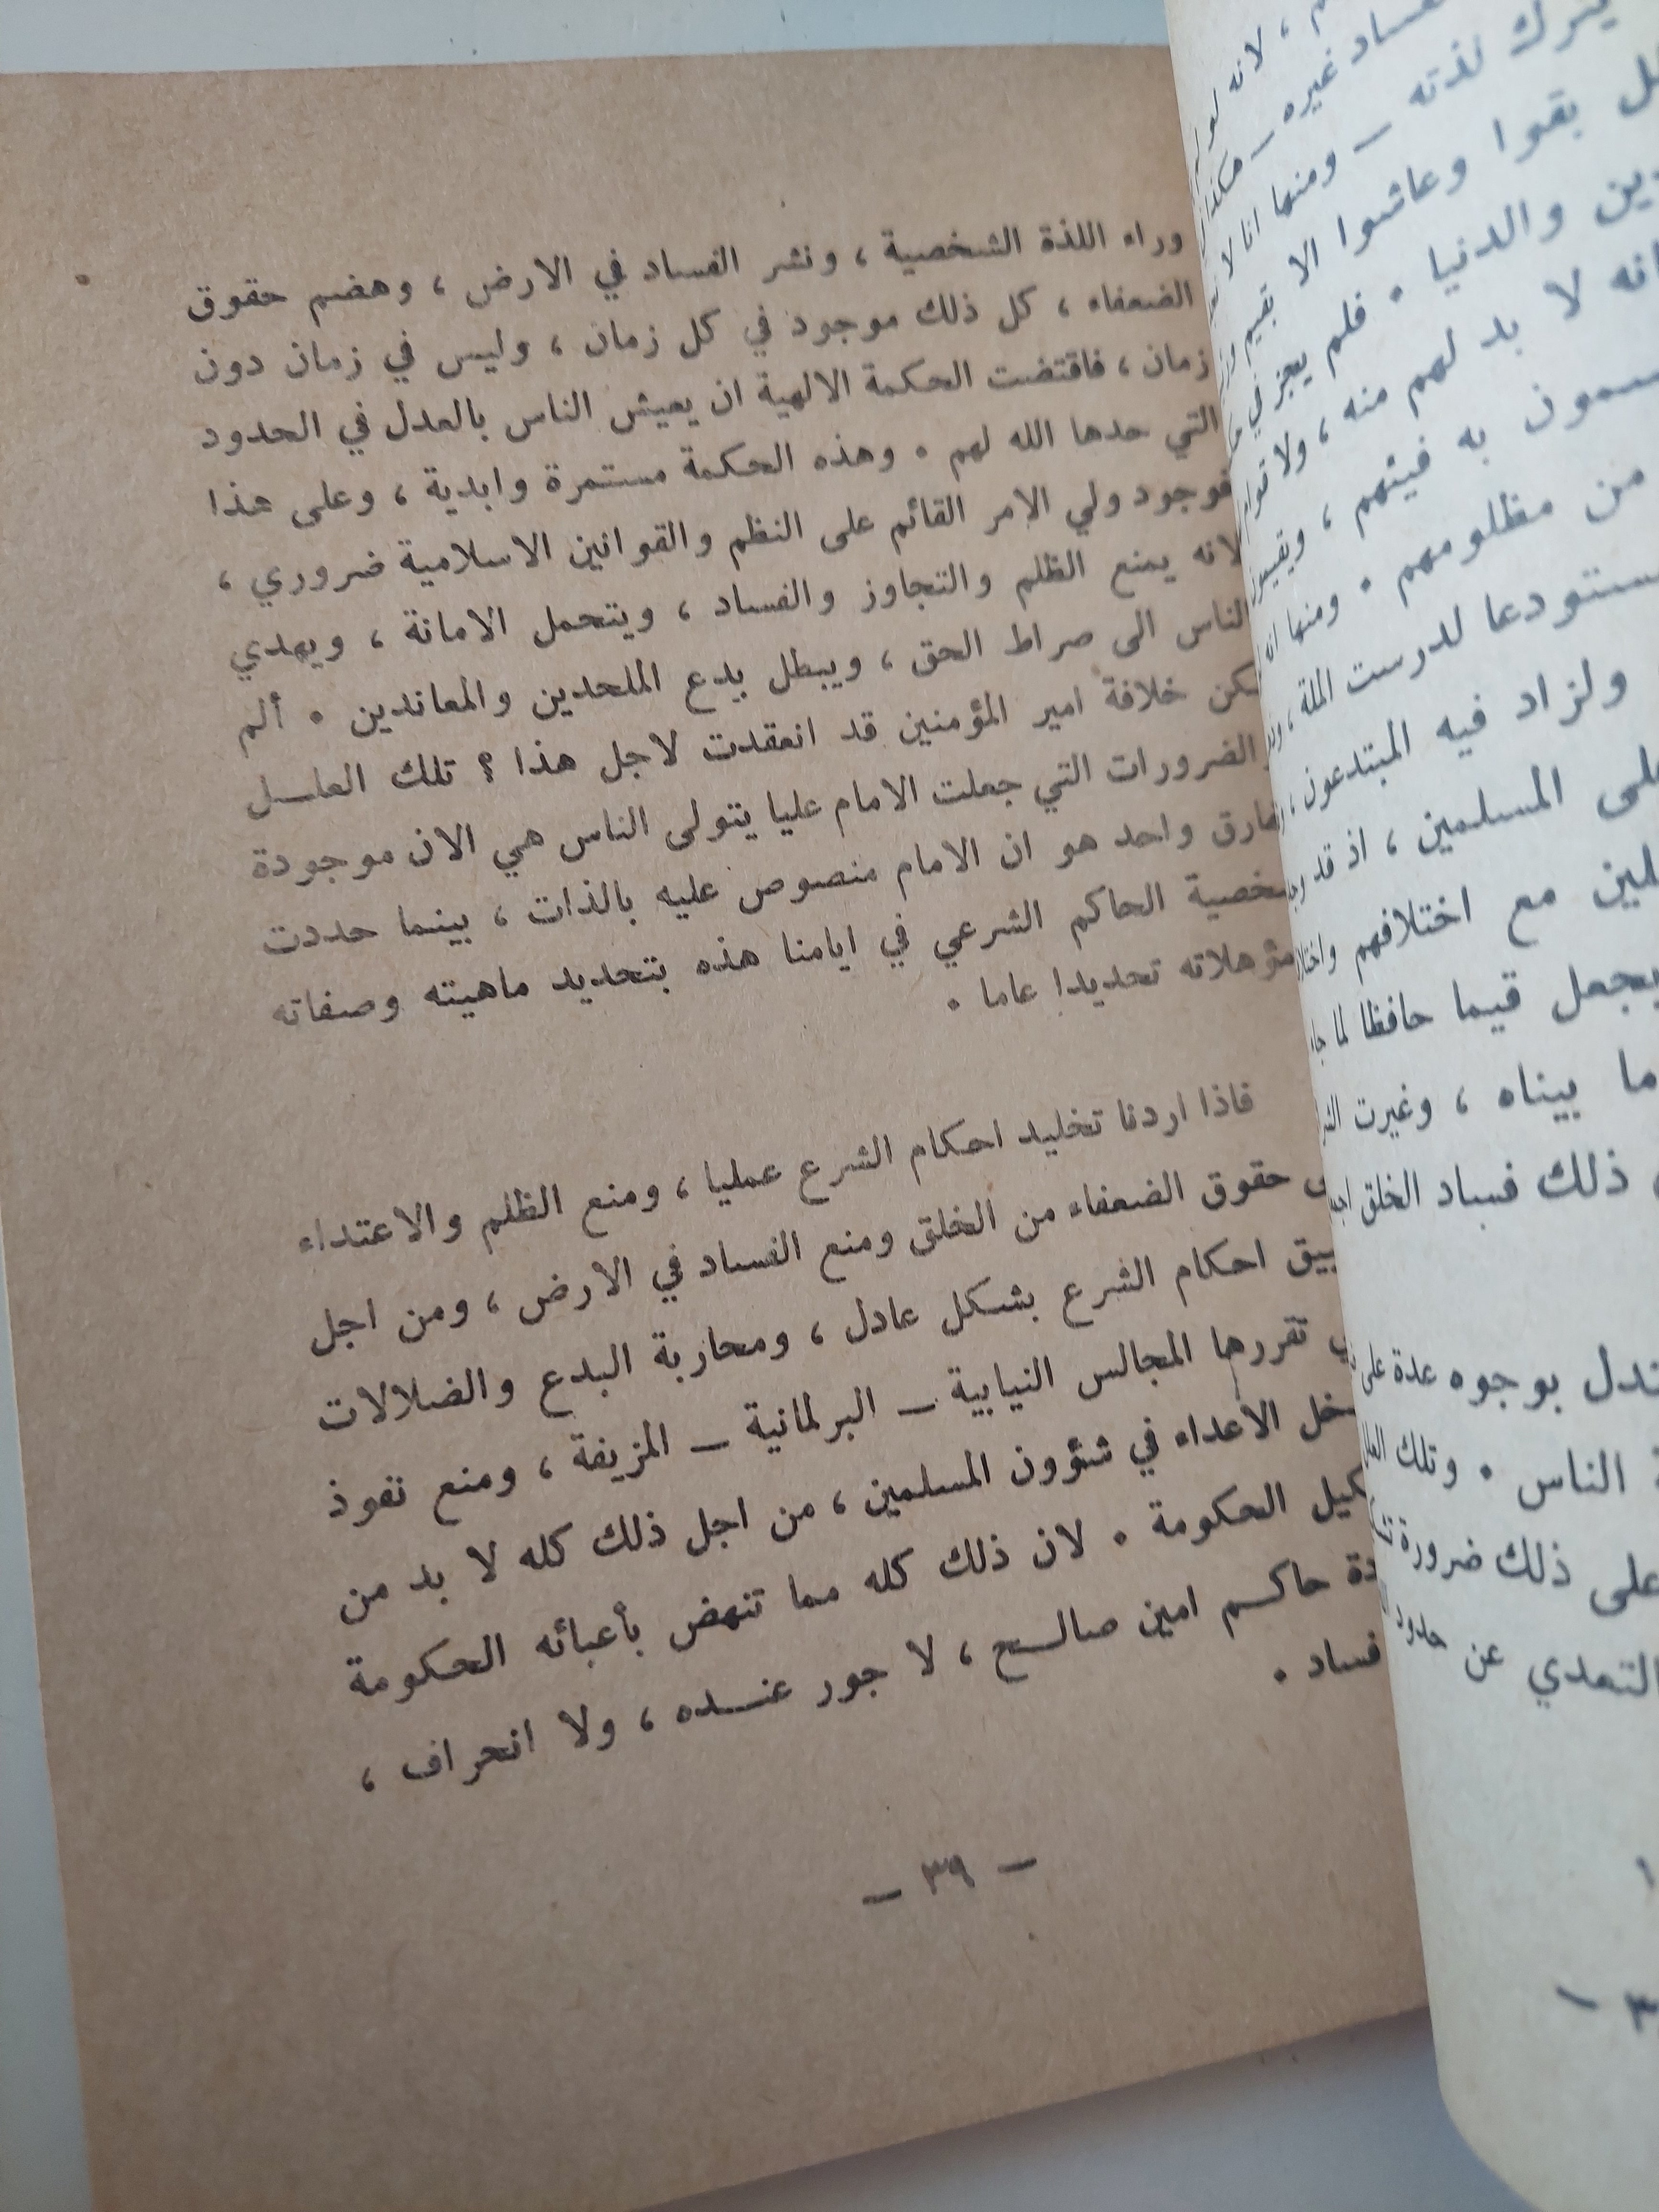 وراء اللذة الشخصية ، ونشر الفساد في الارض ، وهضم حقوق
الضعفاء ، كل ذلك موجود في كل زمان ، وليس في زمان دون
زمان ، فاقتضت الحكمة الالهية ان يعيش الناس بالعدل في الحدود
التي حدها الله لهم . وهذه الحكمة مستمرة وابدية ، وعلى هذا
فوجود ولي الامر القائم على النظم والقوانين الاسلامية ضروري ،
لانه يمنع الظلم والتجاوز والفساد ، ويتحمل الامانة ، ويهدي
الناس الى صراط الحق ، ويبطل بدع الملحدين والمعاندين . ألم
خلافة امير المؤمنين قد انعقدت لاجل هذا ؟ تلك العلل
الضرورات التي جعلت الامام عليا يتولى الناس هي الان موجودة
واحد هو ان الامام منصوص عليه بالذات ، بينما حددت
الحاكم الشرعي في ايامنا هذه بتحديد ماهيته وصفاته
مؤهلاته تحديدا عاما .
فاذا اردنا تخليد احكام الشرع عمليا ، ومنع الظلم والاعتداء
حقوق الضعفاء من الخلق ومنع الفساد في الارض ، ومن اجل
احكام الشرع بشكل عادل ، ومحاربة البدع والضلالات
تقررها المجالس النيابية – البرلمانية – المزيفة ، ومنع نفوذ
الأعداء في شئؤون المسلمين ، من اجل ذلك كله لا بد من
الحكومة . لان ذلك كله مما تنهض بأعبائه الحكومة
حاكم امين صالح ، لا جور عنده ، ولا انحراف ،
فساد .
– ٣٩ –
غيره –
يترك لذته – ومنها انا لا
بقوا وعاشوا الا بقيم
والدنيا . فلم يجز في
لا بد لهم منه ، ولا
به فيئهم ، ويقيمون
من مظلومهم . ومنها ان
لدرست الملة ،
ولزاد فيه المبتدعون ،
المسلمين ، اذ قد
مع اختلافهم
قيما حافظا لما
بيناه ، وغيرت
ذلك فساد الخلق
بوجوه عدة على
الناس . وتلك
على ذلك ضرورة
التعدي عن حدود